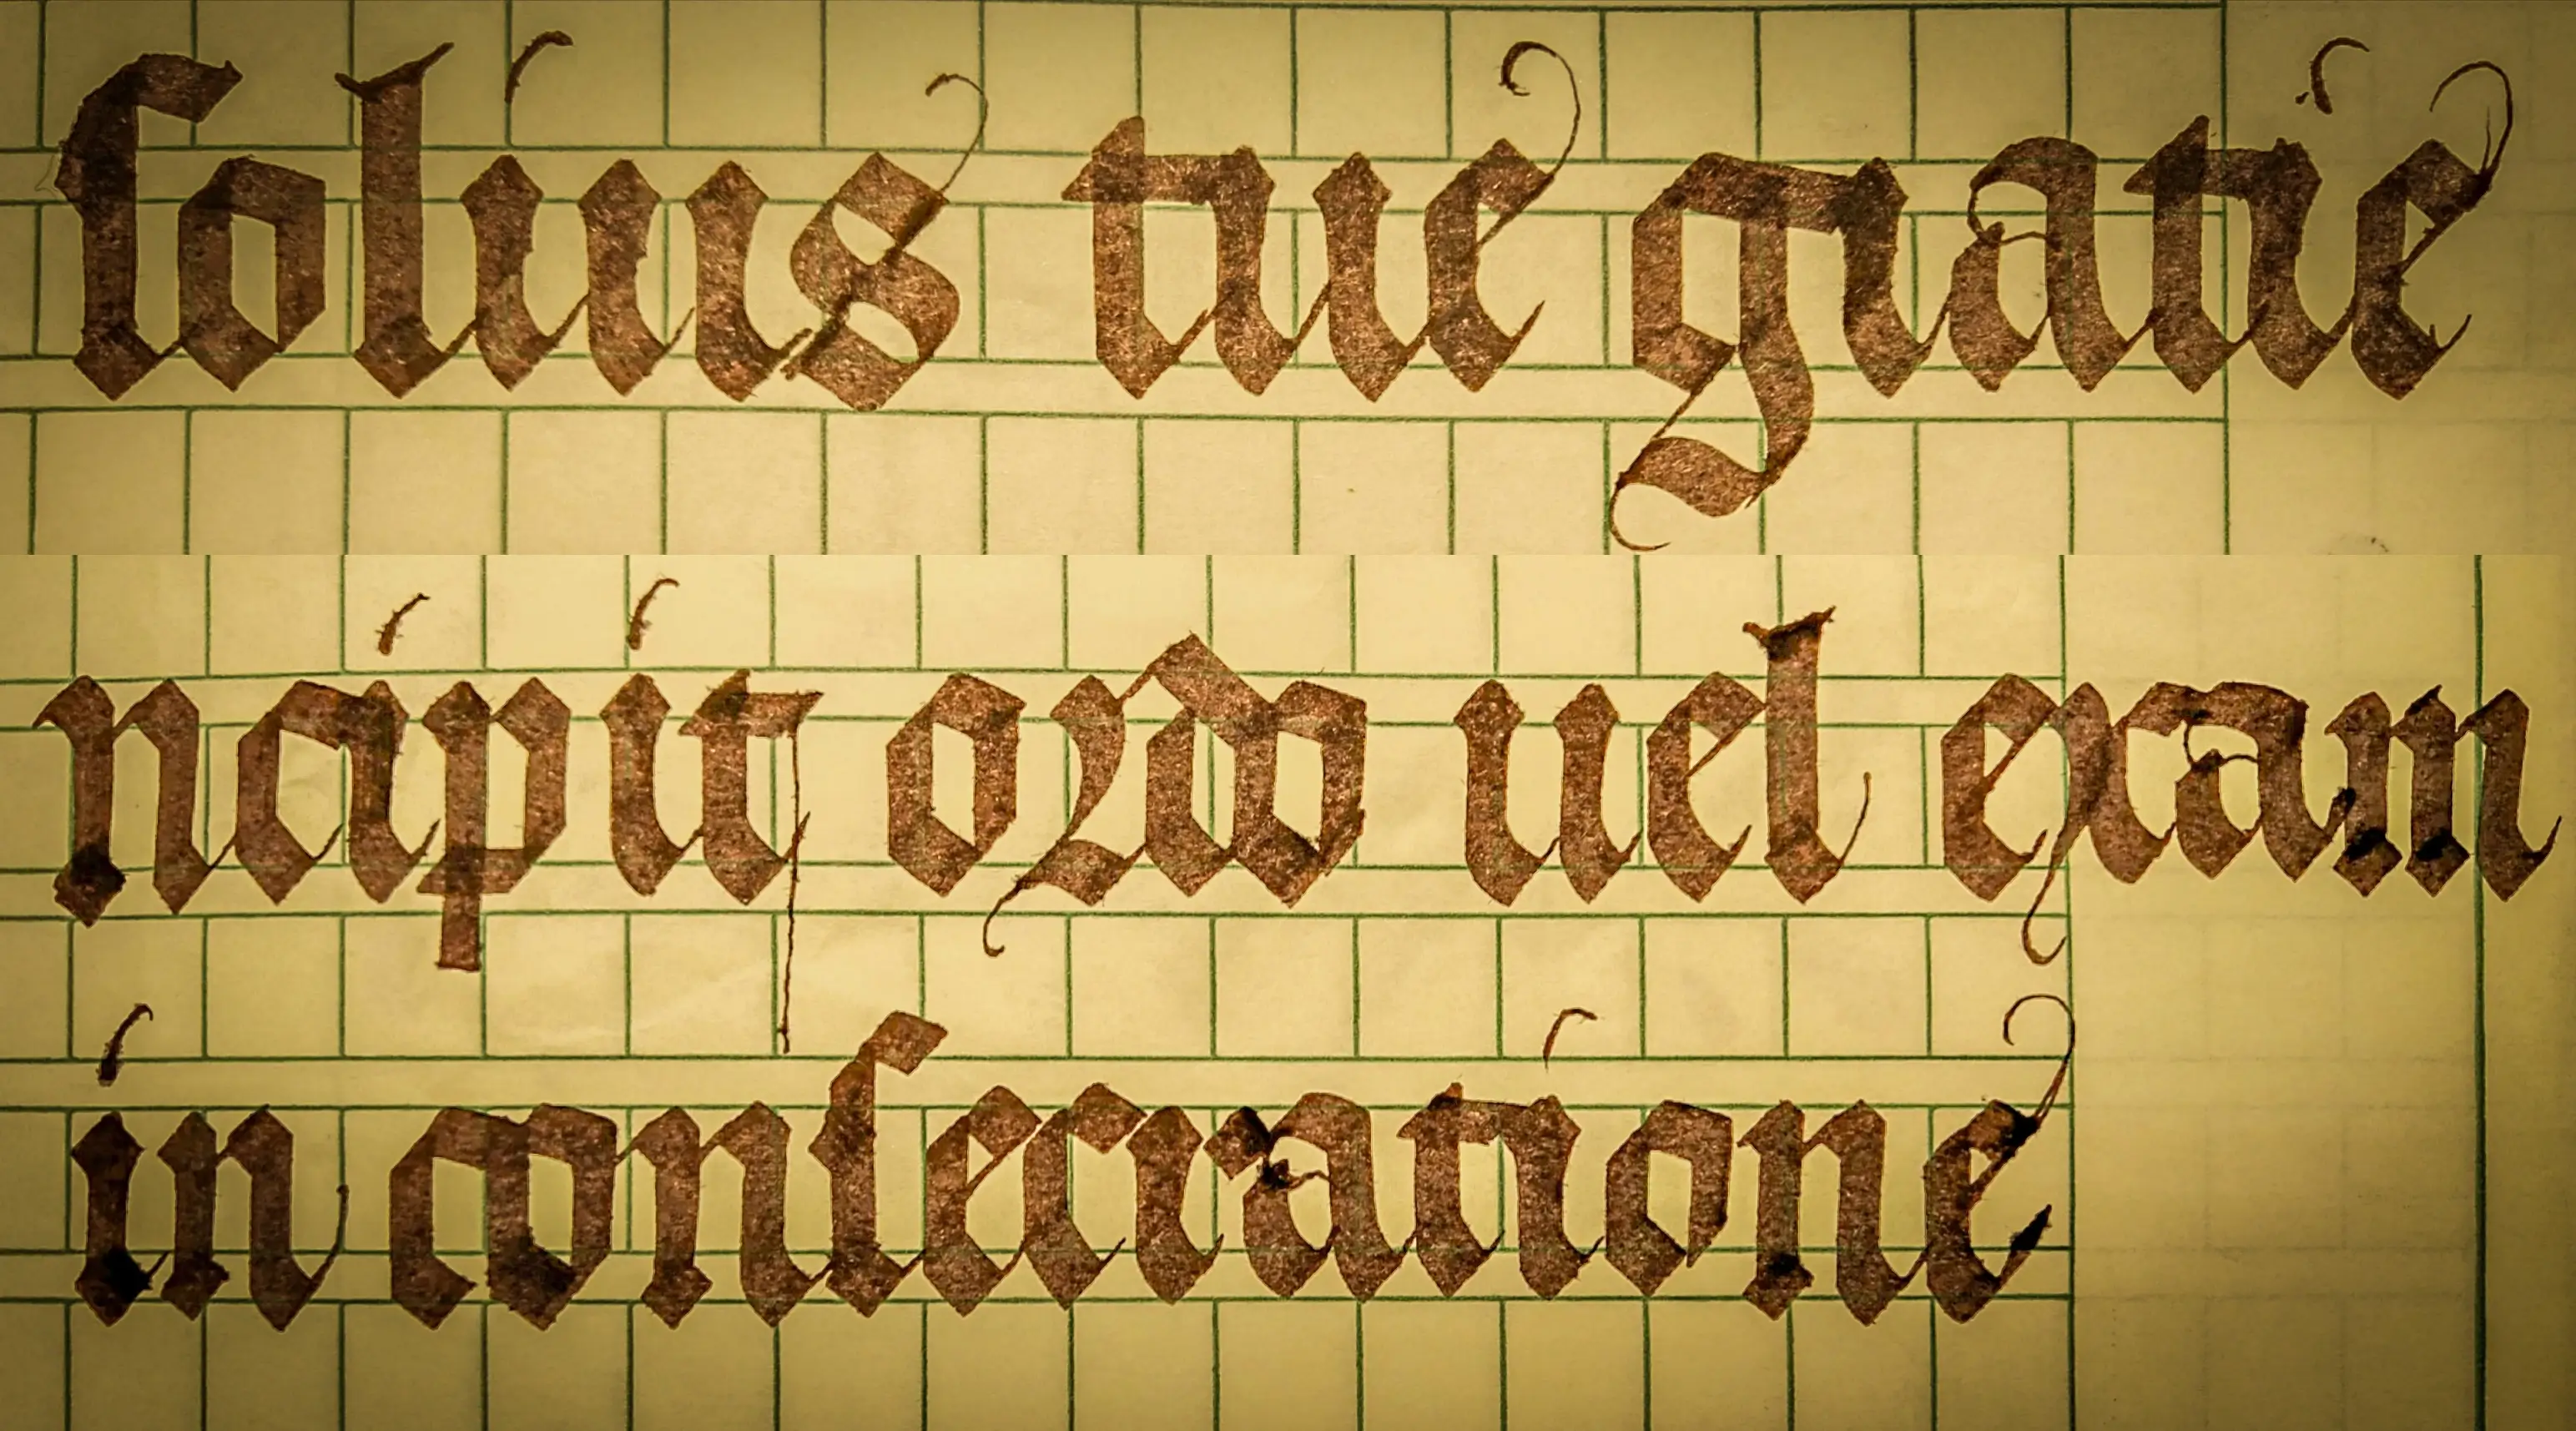 ſolius tue gratie
ncipit ordo uel exam
in conſecratione